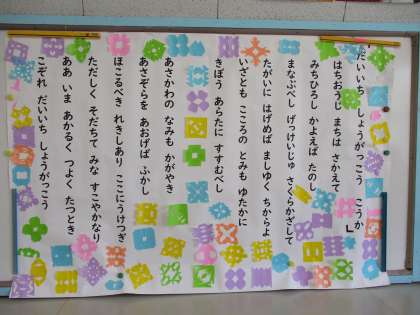 「だいいち しょうがっこう こうか」
はちおうじ まちは さかえて
みちひろし かよえば たのし
まなぶべし げっけいじゅ さくらかざして
たがいに はげめば ましゆく ちからよ
いざとも こころの とみも ゆたかに
きぼう あらたに すすむべし
あさかわの なみも かがやき
あさぞらを あおげば ふかし
ほこるべき れきしあり ここにうけつぎ
ただしく そだちて みな すこやかなり
ああ いま あかるく つよく たつとき
こぞれ だいいち しょうがっこう